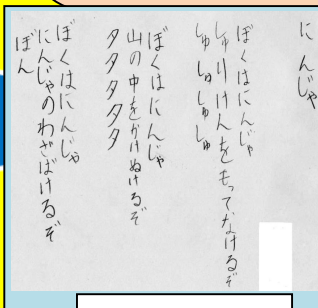 にんじゃ
ぼくはにんじゃ
しゅりけんをもってなげるぞ
しゅしゅしゅしゅ
ぼくはにんじゃ
山の中をかけぬけるぞ
タタタタタ
ぼくはにんじゃ
にんじゃのわざばけるぞ
ぼん